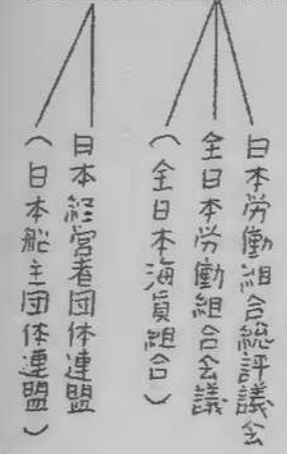 日本労働組合総評議会
全日本労働組合会議
（全日本海員組合）
日本経営者団体連盟
（日本船主団体連盟）